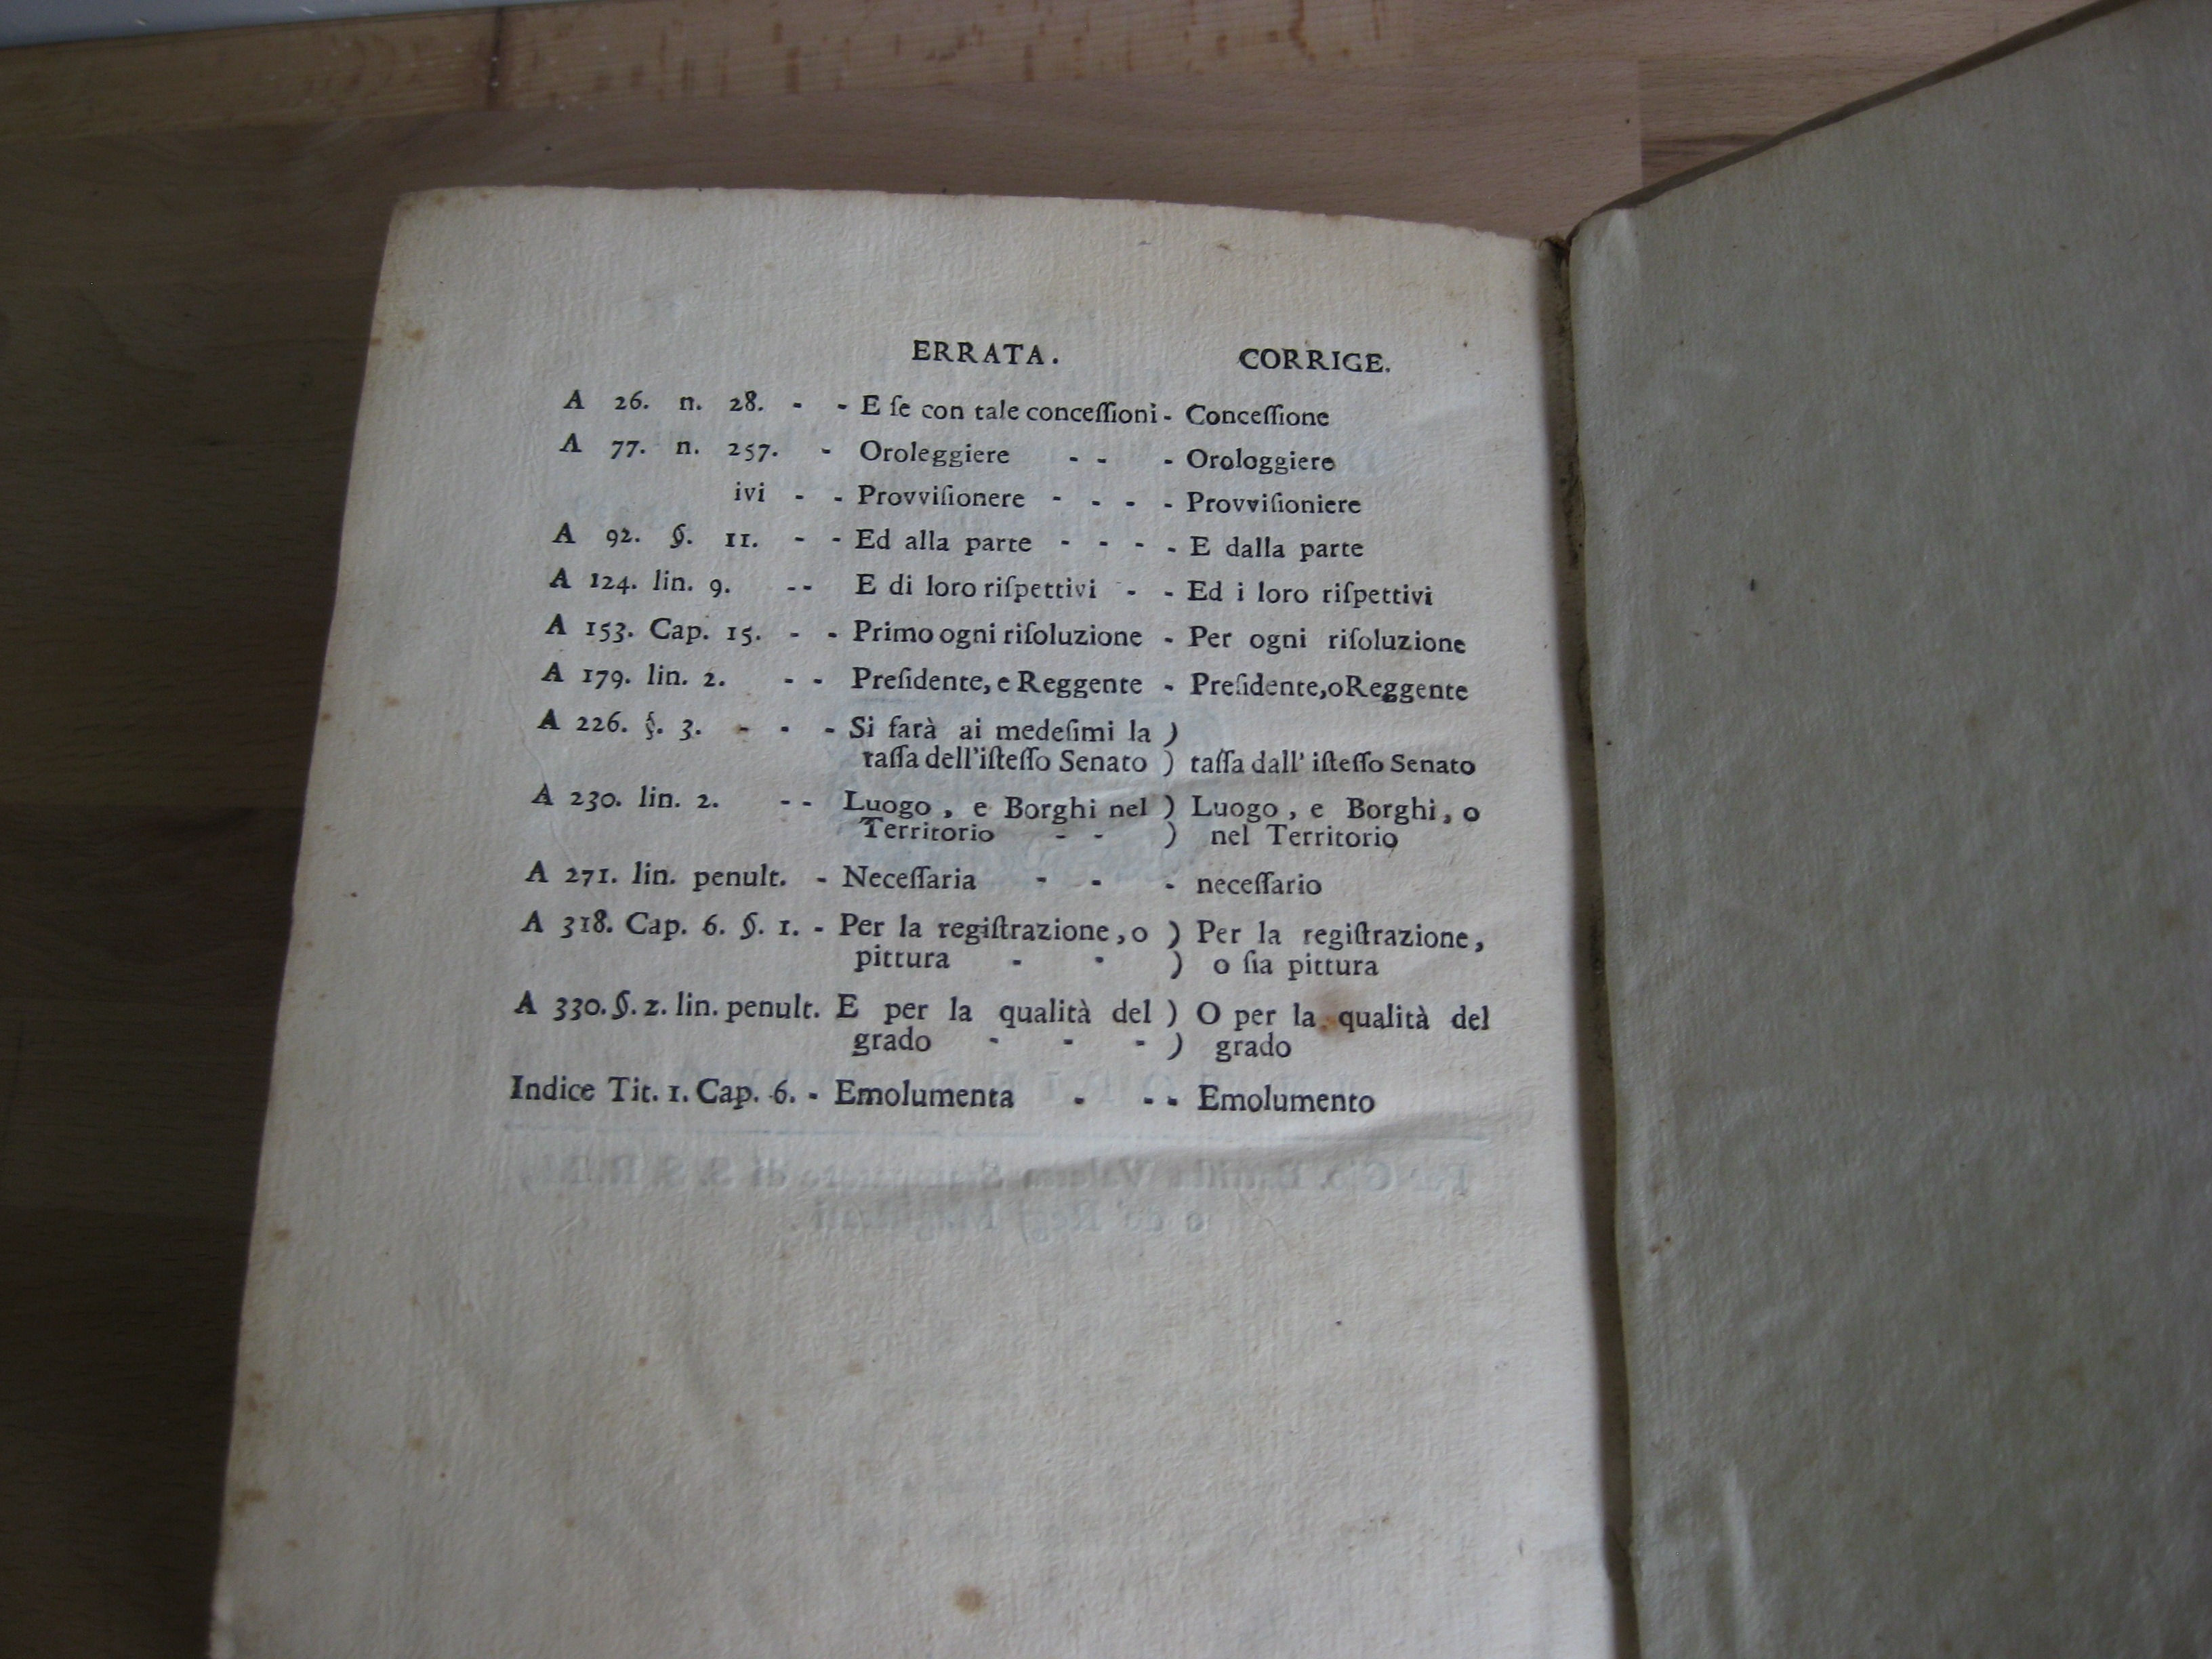 ERRATA. CORRIGE.
A 26. n. 28. - - E ſe con tale conceſſioni - Conceſſione
A 77. n. 257. - Oroleggiere - - - Orologgiere
ivi - - Provviſionere - - - - Provviſioniere
A 92. §. 11. - - Ed alla parte - - - - E dalla parte
A 124. lin. 9. -- E di loro riſpettivi - - Ed i loro riſpettivi
A 153. Cap. 15. - - Primo ogni riſoluzione - Per ogni riſoluzione
A 179. lin. 2. - - Preſidente, e Reggente - Preſidente, o Reggente
A 226. §. 3. - - - Si farà ai medeſimi la )
taſſa dell'iſteſſo Senato ) taſſa dall' iſteſſo Senato
A 230. lin. 2. -- Luogo, e Borghi nel ) Luogo, e Borghi, o
Territorio - - ) nel Territorio
A 271. lin. penult. - Neceſſaria - - - neceſſario
A 318. Cap. 6. §. 1. - Per la regiſtrazione, o ) Per la regiſtrazione,
pittura - - ) o ſia pittura
A 330. §. 2. lin. penult. E per la qualità del ) O per la qualità del
grado - - - ) grado
Indice Tit. 1. Cap. 6. - Emolumenta - - - Emolumento